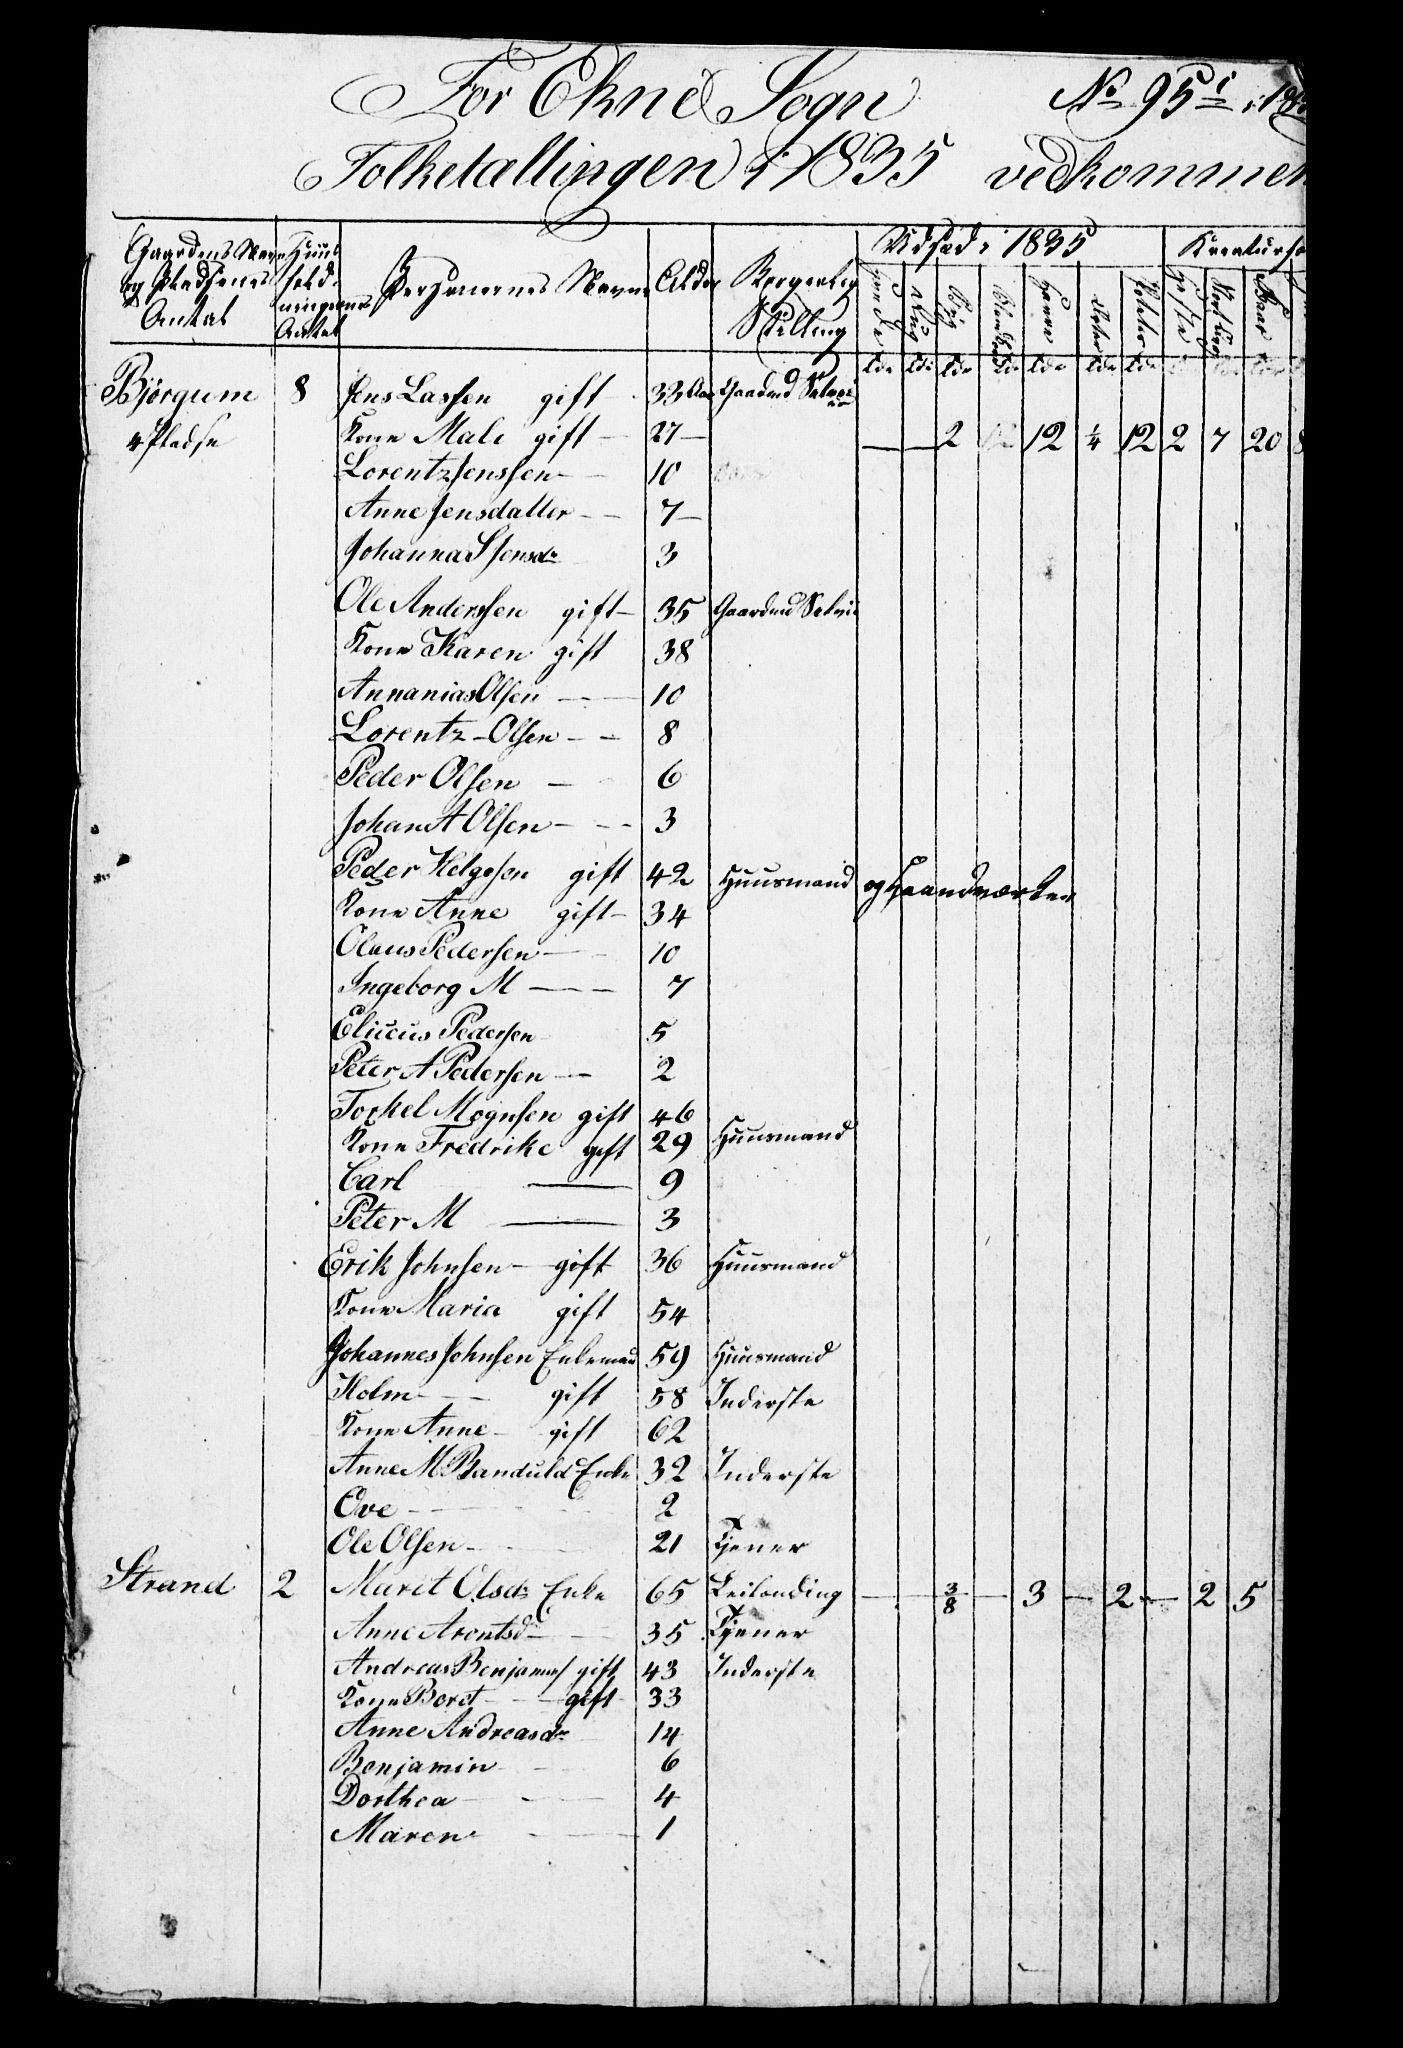 For Ekne Sogn No 95 i
Folketællingen i 1835 vedkommen
Gaardens Navn og Pladsenes Antal
Huusholdningernes Antal
Personernes Navne
Alder
Borgerlig Stilling
Udsæd i 1835
Kreatur
Hvede
Rug
Byg
Blandkorn
Havre
Erter
Poteter
Heste
Faar
Tde Tde Tde Tde Tde Tde Tde
Bjørgum 8 Jens Lassen gift 33 Aar Gaardmd Selveier
4 Pladse Kone Male gift 27 — — 2 12 1/4 12 2 7 20 8
Lorentz Jenssen 10
Anne Jensdatter 7
Johanna S Jensdr 3
Ole Anderssen gift 35 Gaardmd Selveie
Kone Karen gift 38
Annanias Olsen 10
Lorentz Olsen 8
Peder Olsen 6
Johan A Olsen 3
Peder Helgesen gift 42 Huusmand og Haandværker
Kone Anne gift 34
Olaus Pedersen 10
Ingeborg M 7
Eliceus Pedersen 5
Peter A Pedersen 2
Torkel Mognsen gift 46
Kone Fredrike gift 29 Huusmand
Carl 9
Peter M 3
Erik Johnsen gift 36 Huusmand
Kone Maria gift 54
Johannes Johnsen Enkemand 59 Huusmand
Holm gift 58 Inderste
Kone Anne gift 62
Anne M Banduld Enke 32 Inderste
Ove 2
Ole Olsen 21 Tjener
Strand 2 Marit Olsdr Enke 65 Leilænding — — 3/8 — 3 — 2 — 2 5
Anne Arentsd 35 Tjener
Andreas Benjamins gift 43 Inderste
Kone Beret gift 33
Anne Andreasdr 14
Benjamin 6
Dorthea 4
Maren 1